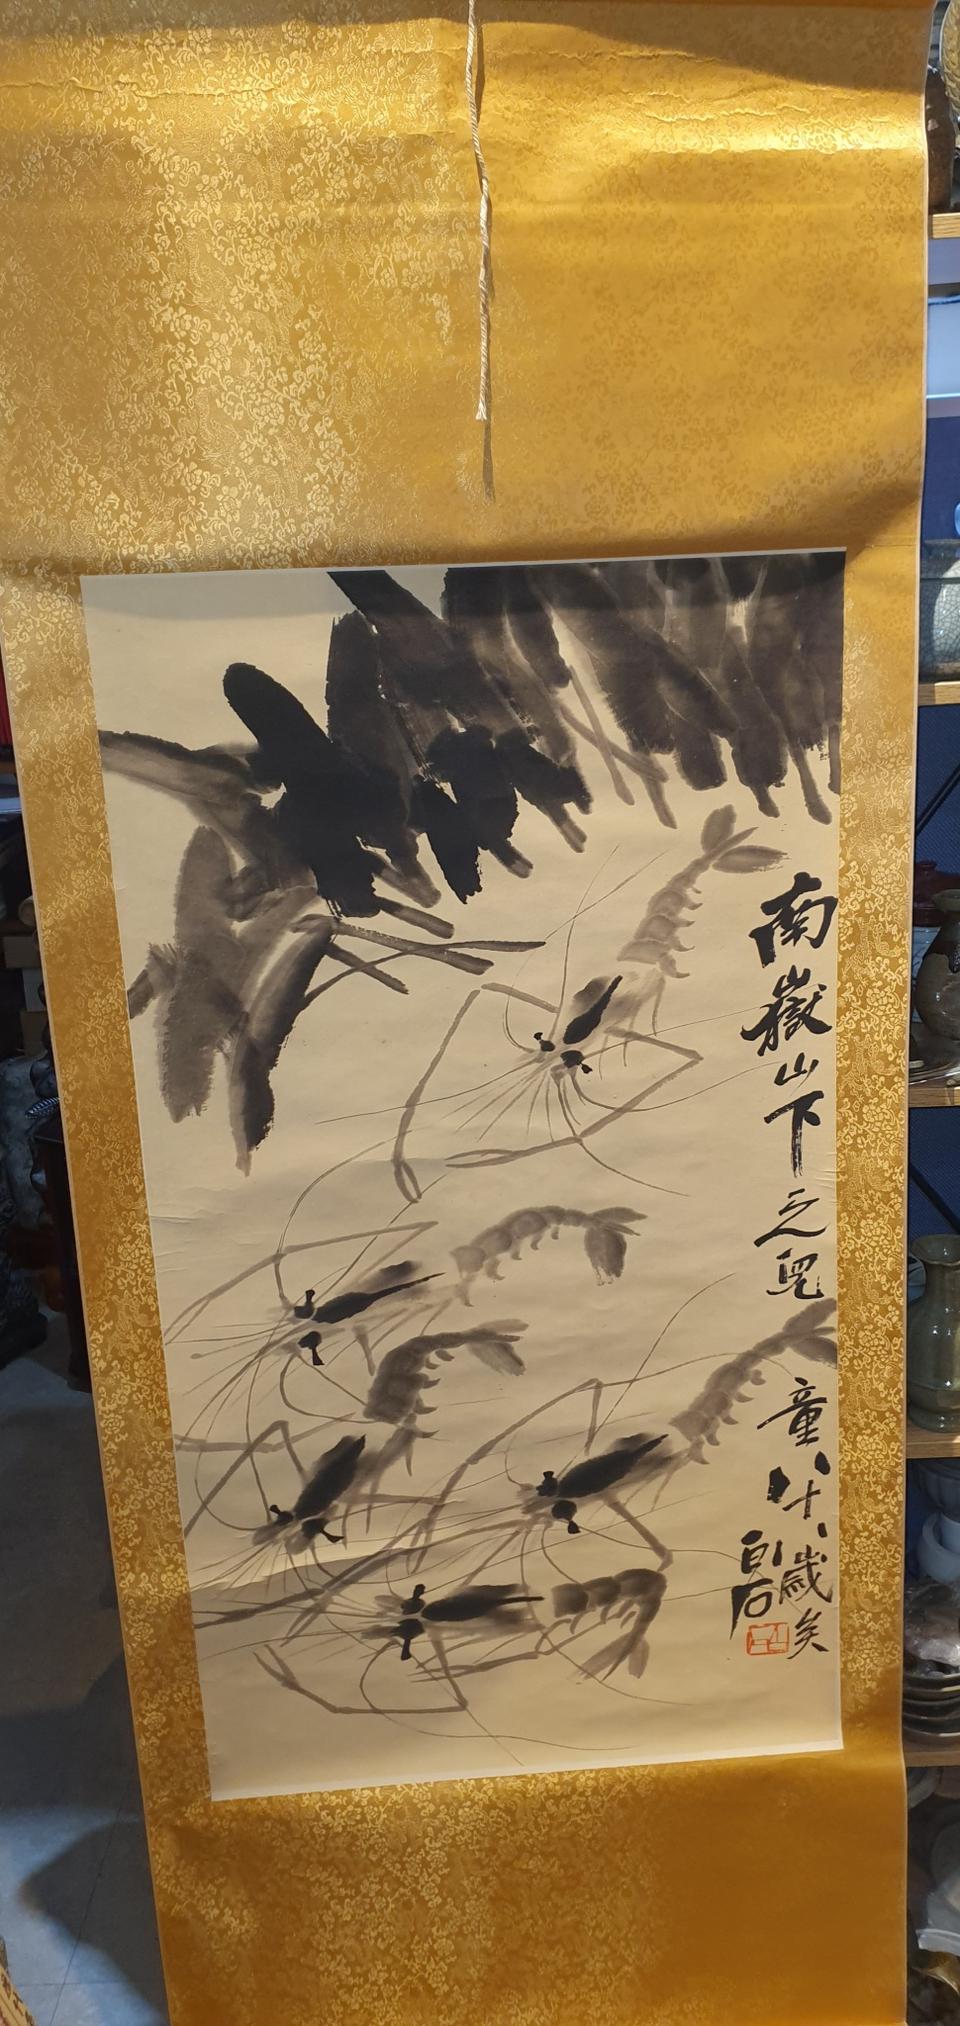 南嶽山下之兒童八十歲矣
白石